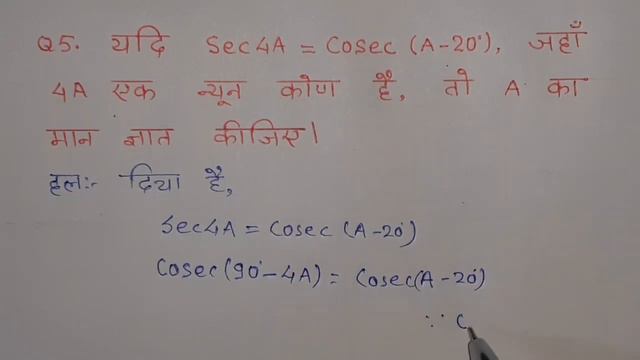 Q5. यदि Sec4A = Cosec (A-20°), जहाँ
4A एक न्यून कोण है, तो A का
मान ज्ञात कीजिए।
हलः- दिया है,
Sec4A = Cosec (A-20°)
Cosec(90°-4A) = Cosec(A-20°)
∵ C